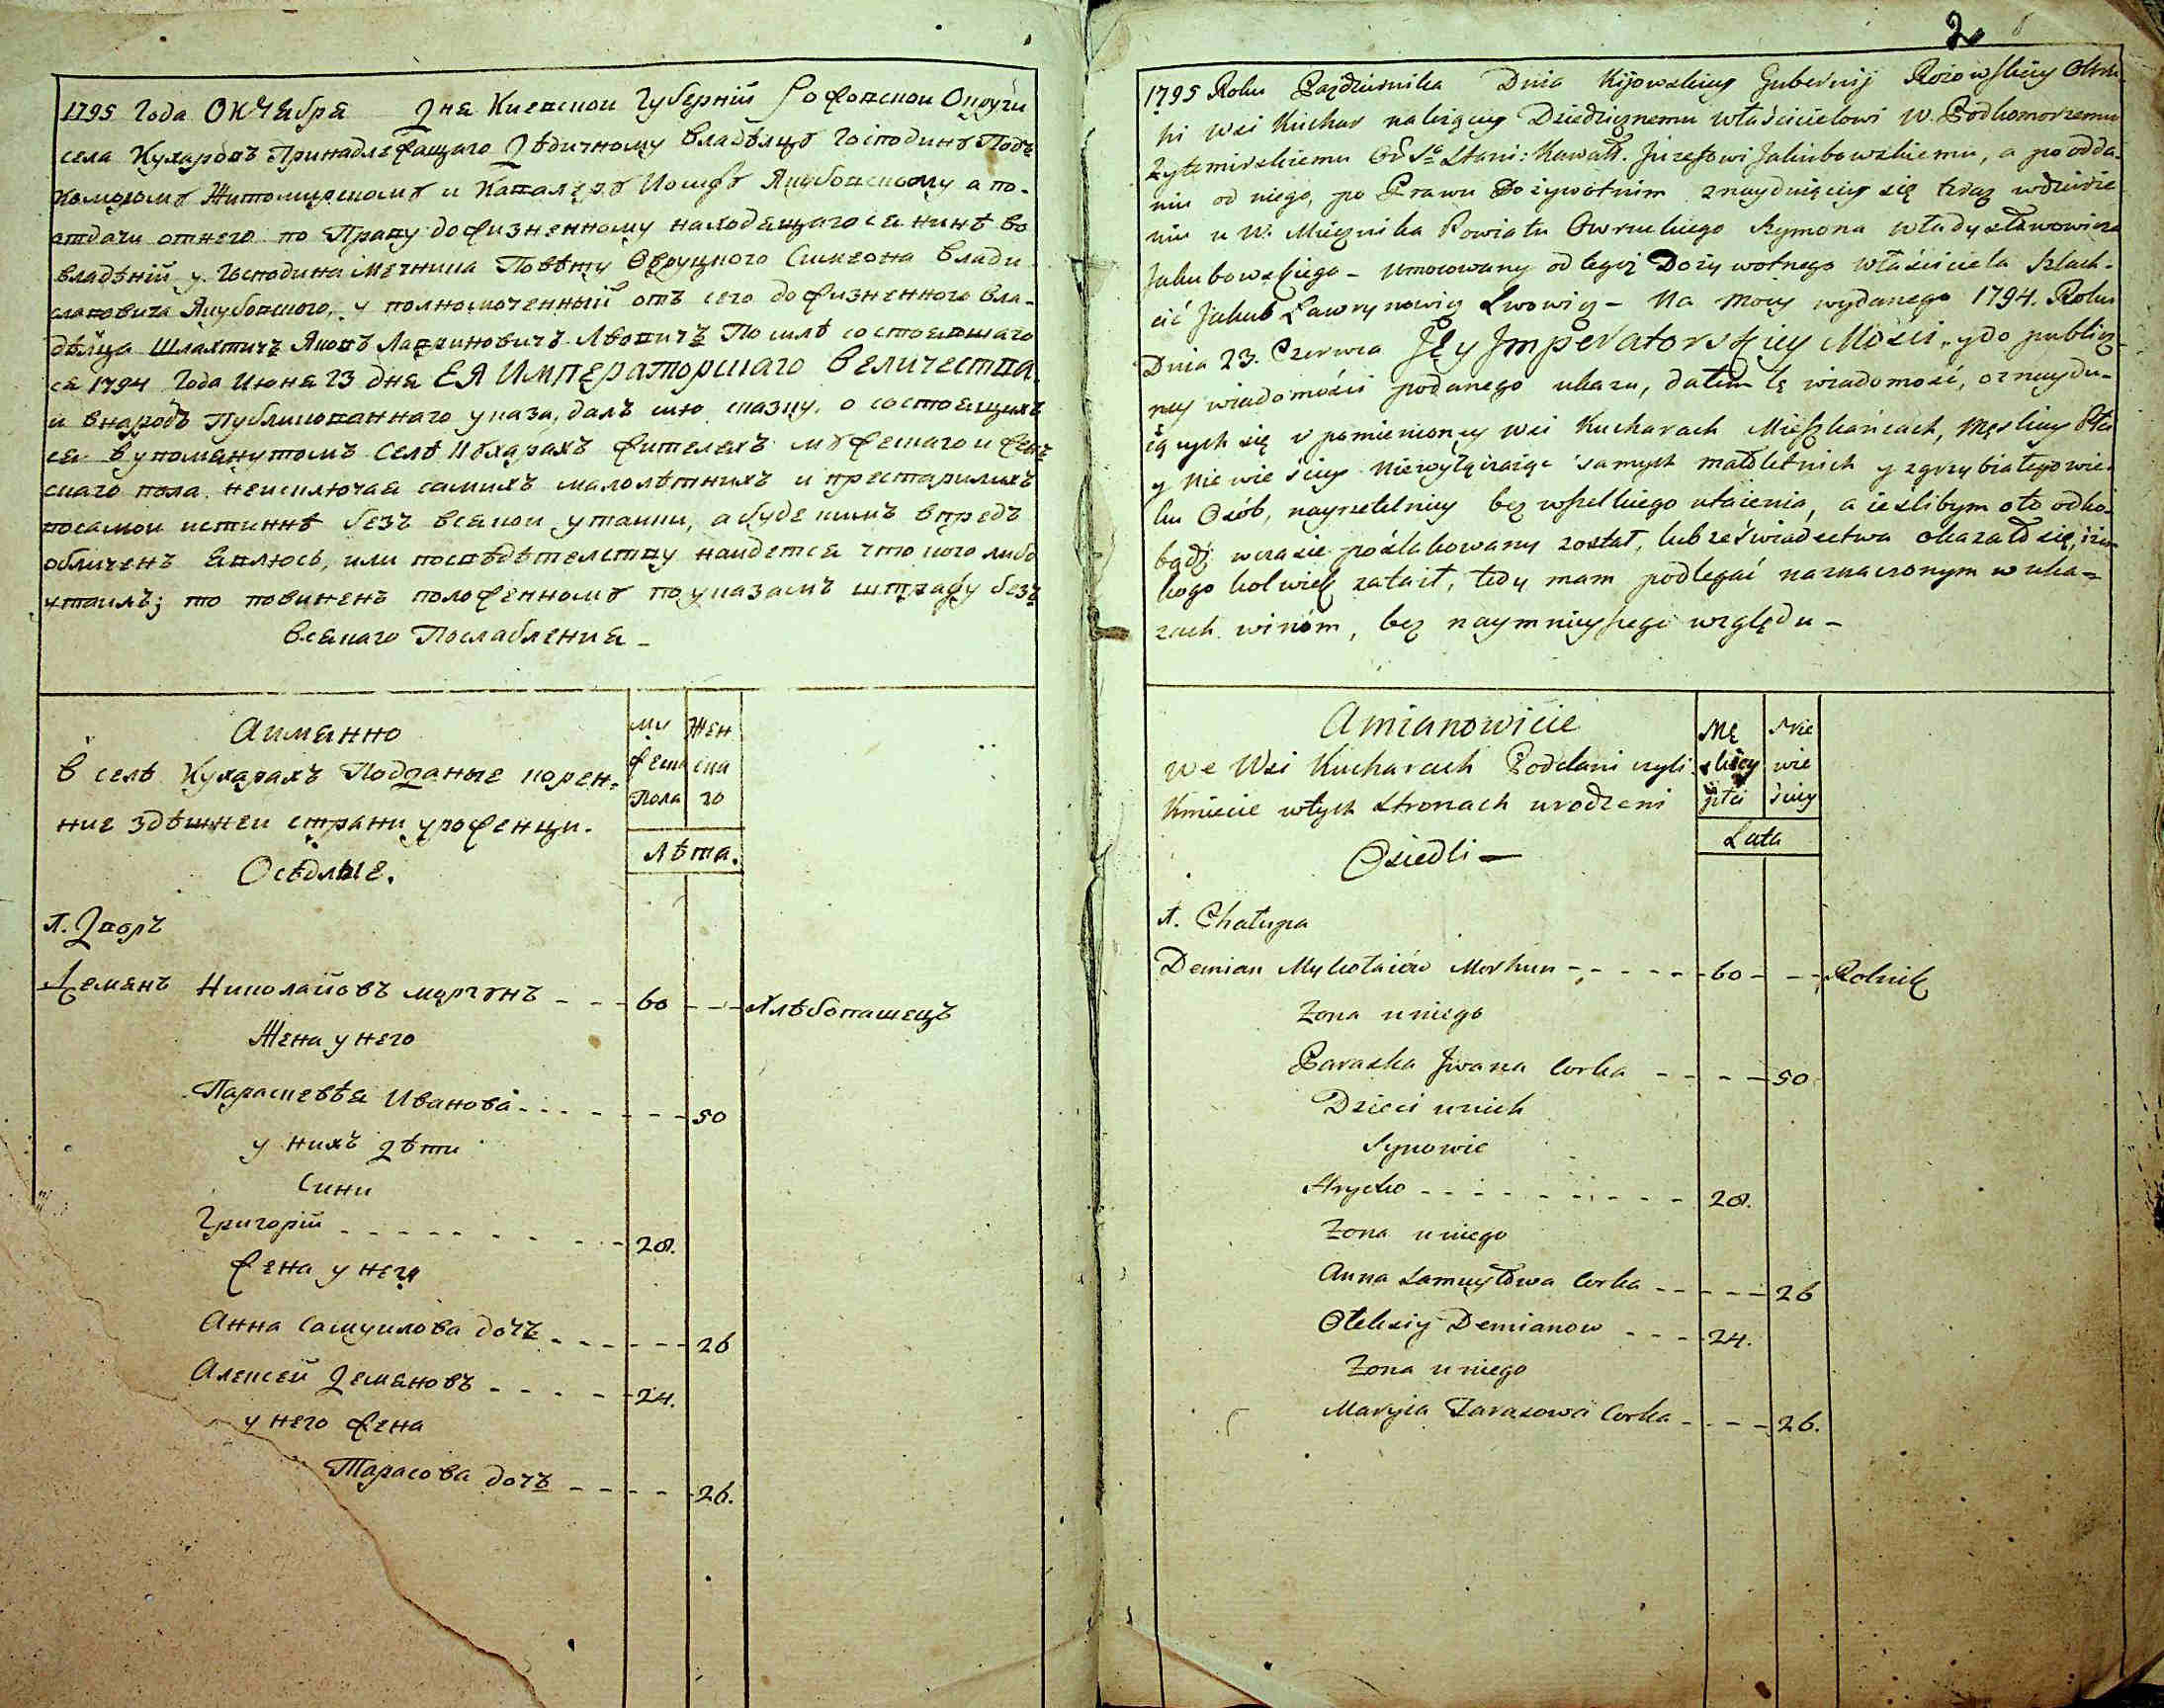 1795 Года Октября Дня Киевской Губернїи Рожовской Округи
села Кухаровъ Принадлежащаго Дѣдичному владѣлцу Господину Подъ
коморому Житомирскому и Кавалеру Иосифу Якубовскому а по
отдачи отнего по Праву дожизненному находящагося нинѣ во
владѣнїи у Господина Мечника Повѣту Овруцкого Симеона Влади
славовича Якубовского, уполномоченный отъ сего дожизненного вла-
дѣлца Шляхтичъ Яковъ Лавриновичъ Лвовичъ По силѣ состоявшаго
ся 1794 Года Июня 23 дня ЕЯ Императорскаго Величества
и внародъ Публикованнаго указа, далъ сию сказку, о состоящихъ
ся вупомянутомъ Селѣ Кухарахъ жителяхъ мужескаго и жен
скаго пола неисключая самихъ малолѣтнихъ и престарилихъ
посамой истиннѣ безъ всякой утайки, а буде кимъ впредъ
обличенъ явлюсь, или посвѣдѣтелству найдется что кого либо
утаилъ; то повиненъ положенному поуказамъ штрафу безъ
всякаго Послабления –
Аимянно
в селѣ Кухарахъ Подданые корен-
ние здѣшней страни уроженци.
Осѣдлые.
му
жеска
Пола
Жен
ска
го
Лѣта.
1. Дворъ
Демянъ Николайовъ моргунъ - - - 60 - - - Хлѣбопашецъ
Жена у него
Параскевѣя Иванова - - - - - - - 50
у нихъ дѣти
Сини
Григорїй - - - - - - - - 28.
жена у него
Анна Самуилова дочъ - - - - - - 26
Алексей Демяновъ - - - - - 24.
у него жена
Тарасова дочъ - - - - - 26.
2
1795 Roku Października Dnia Kijowskiey Gubernij Rożowskiey Okru
ki wsi Kuchar należącey Dziedzicznemu właścicielowi W. Podkomorzemu
Żytomirskiemu Stani: Kawall. Juzefowi Jakubowskiemu, a po odda-
niu od niego, po Prawu Dożywotnim znayduięcey się teraz wdzierże
niu u W. Miecznika Powiatu Owruckiego Szymona władysławowicza
Jakubowskiego – umocowany od tegoż Dożywotnego właściciela Szlach-
cić Jakub Ławrynowicz Lwowicz – Na mocy wydanego 1794. Roku
Dnia 23. Czerwca Jęy Imperatorskiey Mości, ydo publicz
ney wiadomości podanego ukazu, dałem tę wiadomość, oznaydu-
ią cych się v pomienioney wsi Kucharach Mieszkańcach, Męskiey Płci
y Niewieściey Niewyłączaiąc samych małoletnich y zgrzybiałego wie-
ku Osób, nayrzetelniey bez wszelkiego utaienia, a ieślibym oto odko-
bądź wczasie poszlakowany został, lub zeświadectwa okazałosię, iżem
kogo kolwiek zataił, tedy mam podlegać naznaczonym w uka-
zach winom, bez naymnieyszego względu –
Amianowicie
we Wsi Kucharach Poddani czyli
Kmiecie wtych stronach urodzeni
Osiedli –
Mę
skiey
płci
Nie
wie
ściey
Lata
1. Chałupa
Demian Mykołaiów Morhun - - - - - - 60 - - - Rolnik
Żona uniego
Paraska Jwana Corka - - - - 50
Dzieci unich
Synowie
Hryćko - - - - - - - - - 28.
Żona uniego
Anna Samuyłowa Corka - - - - - 26
Ołeksiy Demianow - - - 24.
Żona uniego
Maryia Tarasowa Corka - - - - 26.